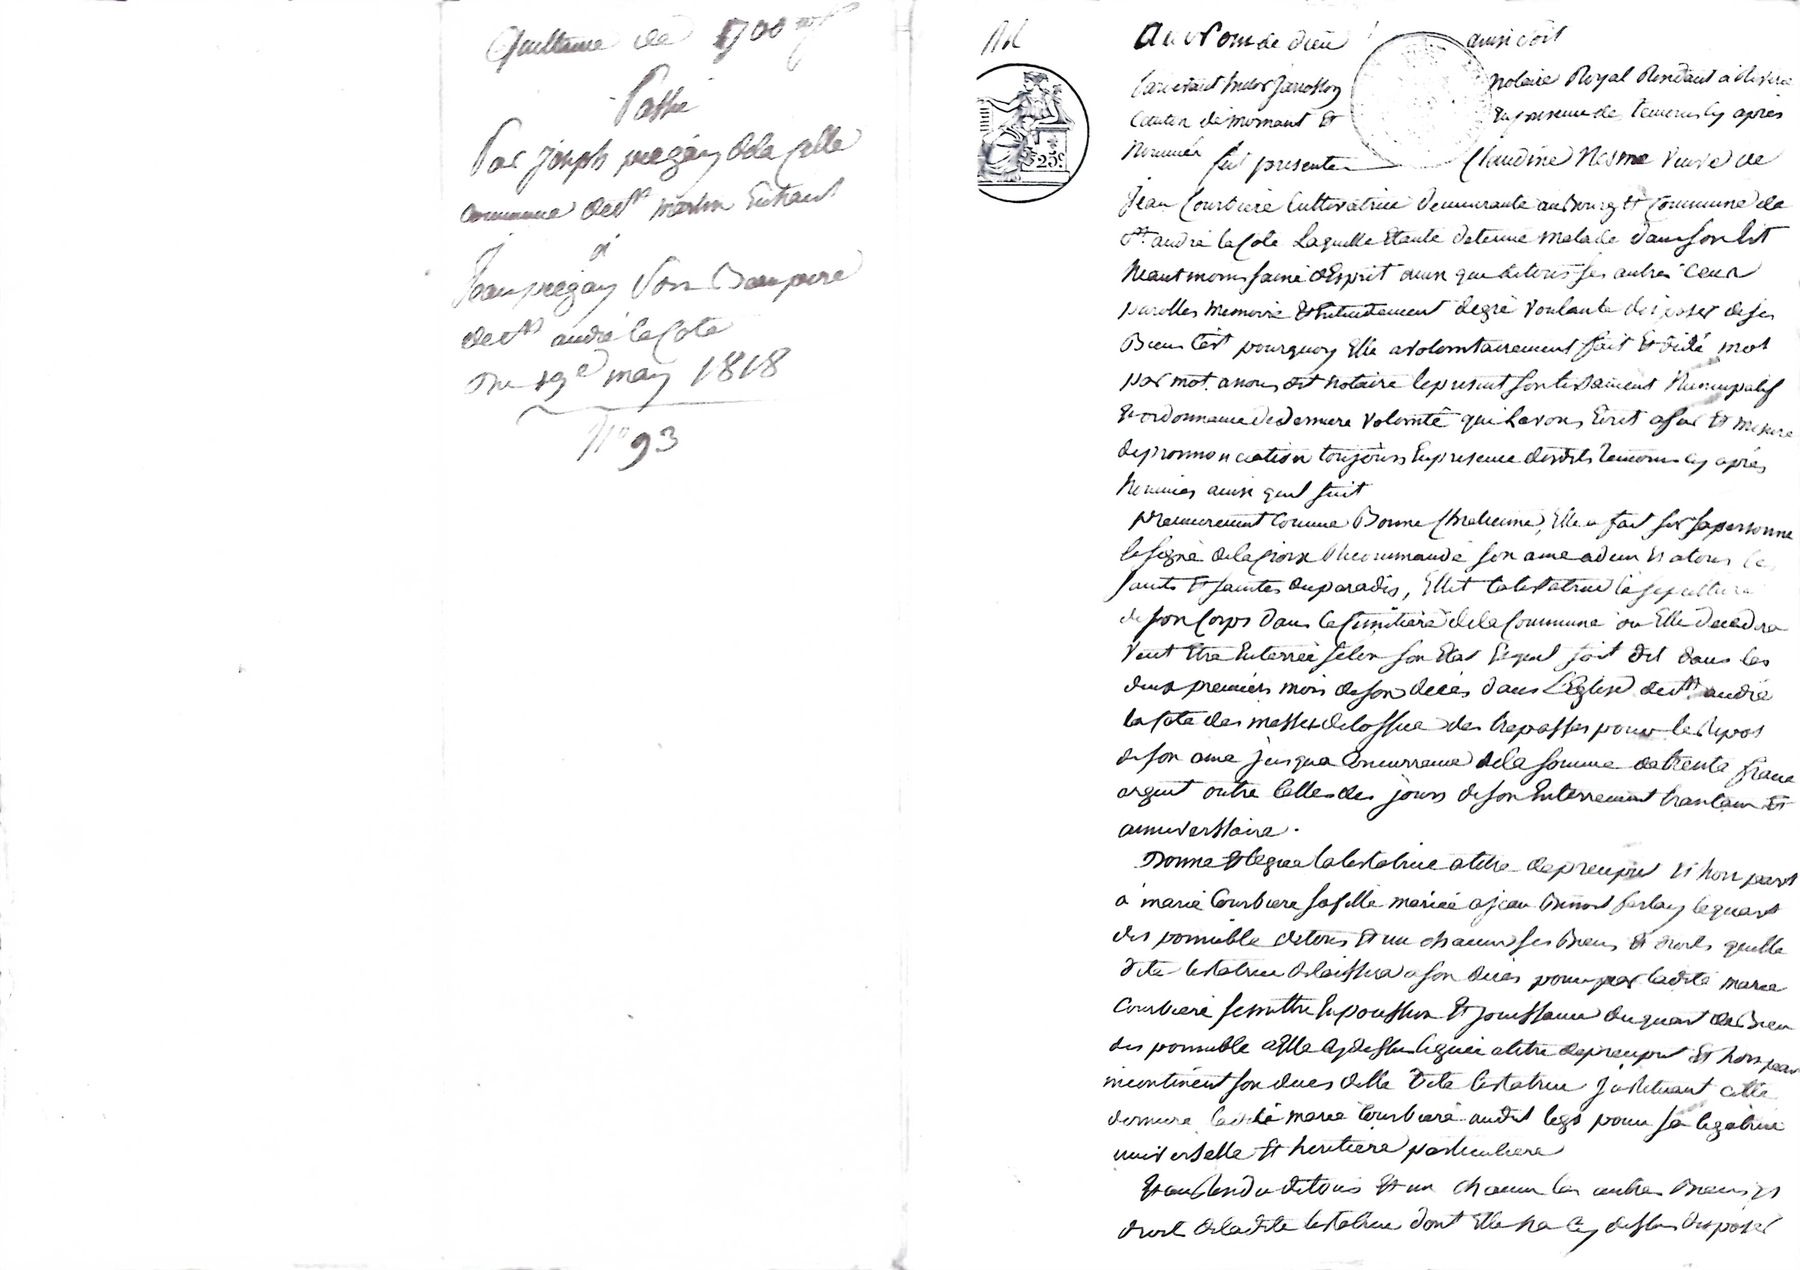 Quittance de 1700 ff
Passé
Par joseph pregay dela Celle
commune de st martin En haut
à
Jean pregay Son Beaupere
de st andré la Cote
Du 19e may 1818
N° 93
Au Nom de Dieu ainsi soit
Pardevant notaire Royal Residant à Riverie
Canton de mornant Et En presence des temoins cy après
Nommés fut presente Claudine Nesme veuve de
Jean Courbiere Cultivatrice Demeurante au Bourg Et Commune de
st andré la Cote Laquelle Etante detenue Malade dans son Lit
Neantmoins saine d'Esprit ainsi que de tous ses autres cens
parolles memoire Et Entendement de gré voulante disposer de ses
Biens C'est pourquoy Elle a volontairement fait Et dicté mot
par mot a nous dit notaire le present son testament Nuncupatif
Et ordonnance de derniere volonté qui L'avons Ecrit a fur Et mesure
de pronnonciation toujours En presence desdits temoins cy après
Nommés ainsi quil suit
premierement Comme Bonne Chretienne, Elle a fait sur sa personne
le signe dela Croix Recommandé son ame a dieu Et a tous les
saints Et saintes du paradis, Elit la testatrice la sepulture
de son Corps dans le Cimitiere dela Commune où Elle decedera
Veut Etre Enterrée selon son Etat Et quil soit dit dans les
deux premiers mois de son decés dans L'Eglise de st andré
la Cote des messes de l'office des trepassés pour le Repos
de son ame jusqua Concurrence dela somme de trente francs
argent outre Celles des jours de son Enterrement trantain Et
anniverssaire.
Donne Et legue la testatrice a titre de preciput Et hors part
à marie Courbiere sa fille mariée a jean Benoit le quart
dis ponnible de tous Et un chacuns ses Biens Et droits quelle
dite testatrice delaissera a son decés pour par ladite marie
Courbiere se mettre En possession Et jouissance du quart des Biens
dis ponnible a Elle cy dessus leguée a titre de preciput Et hors part
incontinent son decés d'elle dite testatrice Instituant cette
derniere ladite marie Courbiere audit legs pour sa legatrice
universelle Et heritiere particuliere
Et au Residu de tous Et un chacun les autres Biens Et
droit dela dite testatrice dont Elle n'a cy dessus disposés